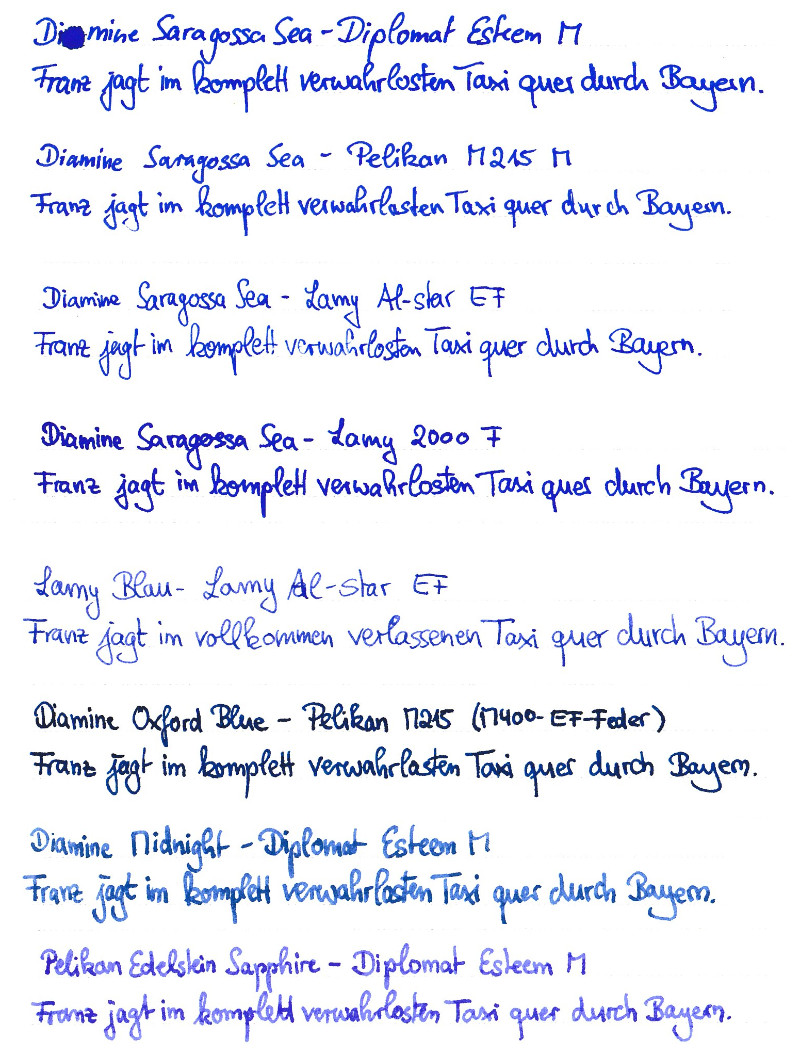 Diamine Saragossa Sea - Diplomat Esteem M
Franz jagt im komplett verwahrlosten Taxi quer durch Bayern.
Diamine Saragossa Sea - Pelikan M215 M
Franz jagt im komplett verwahrlosten Taxi quer durch Bayern.
Diamine Saragossa Sea - Lamy Al-star EF
Franz jagt im komplett verwahrlosten Taxi quer durch Bayern.
Diamine Saragossa Sea - Lamy 2000 F
Franz jagt im komplett verwahrlosten Taxi quer durch Bayern.
Lamy Blau - Lamy Al-star EF
Franz jagt im vollkommen verlassenen Taxi quer durch Bayern.
Diamine Oxford Blue - Pelikan M215 (M400-EF-Feder)
Franz jagt im komplett verwahrlosten Taxi quer durch Bayern.
Diamine Midnight - Diplomat Esteem M
Franz jagt im komplett verwahrlosten Taxi quer durch Bayern.
Pelikan Edelstein Sapphire - Diplomat Esteem M
Franz jagt im komplett verwahrlosten Taxi quer durch Bayern.